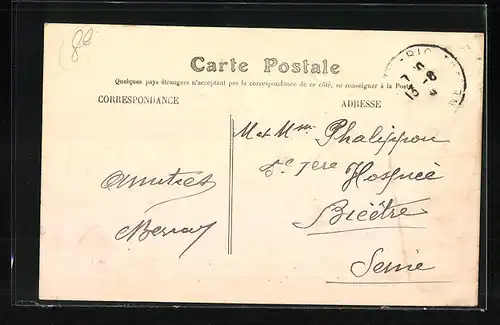 Carte Postale
Quelques pays étrangers n'acceptant pas la correspondance de ce côté, se renseigner à la Poste
CORRESPONDANCE
ADRESSE
M et Mme Phalippou
Hospice
Bicêtre
Seine
Amitiés